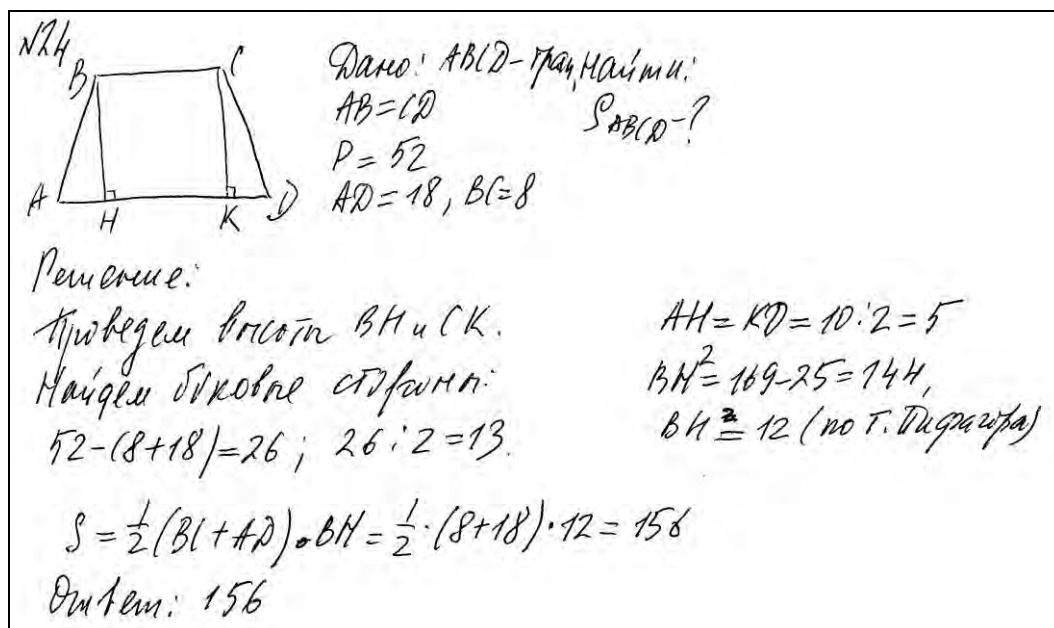 N24
B C
A H K D
Дано: ABCD-трап, Найти:
AB=CD S ABCD-?
P=52
AD=18, BC=8
Решение:
Проведем высоты BH и CK.
Найдем боковые стороны:
52-(8+18)=26; 26:2=13.
AH=KD=10:2=5
BH²=169-25=144,
BH=12 (по Т. Пифагора)
S=½(BC+AD)•BH=½·(8+18)·12=156
Ответ: 156